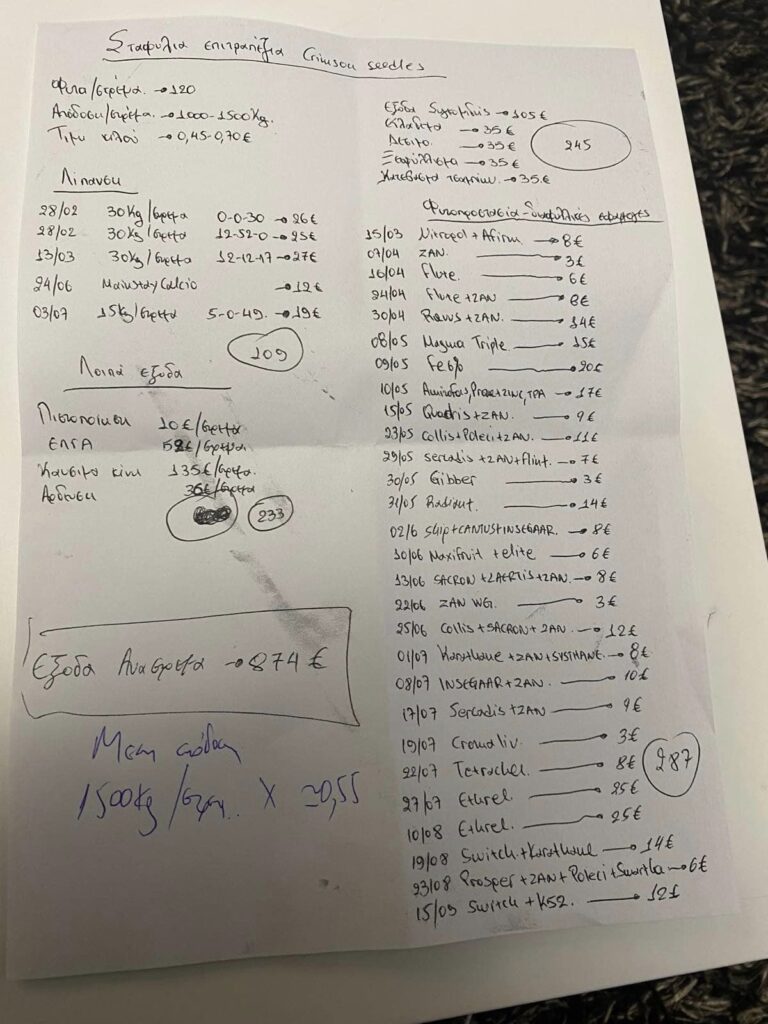 Σταφύλια επιτραπέζια Crimson seedles
Φυτα/στρέμμα. → 120
Αποδοση/στρέμμα. → 1000-1500Kg.
Τιμη κιλού → 0,45-0,70€
Λιπανση
28/02 30Kg/στρεμμα 0-0-30 → 26€
28/02 30Kg/στρεμμα 12-52-0 → 25€
13/03 30Kg/στρεμμα 12-12-17 → 27€
24/06 Calcio → 12€
03/07 15Kg/στρεμμα 5-0-49. → 19€
109
Λοιπά έξοδα
Πιστοποιηση 10€/στρεμμα
ΕΛΓΑ 52€/στρεμμα
Καυσιμα κινη 135€/στρεμμα.
Αρδευση 36€/στρεμμα
233
Εξοδα Αναστρεμμα → 874€
Μεση αποδοση
1500Kg/στρεμ. X 0,55
Εξοδα Συγκομιδης → 105€
Κλαδεμα → 35€
Δεσιμο. → 35€
Ξεφύλλισμα → 35€
Κατεβασμα τσαμπιων. → 35€
245
Φυτοπροστασία-διαφυλλικές εφαρμογες
15/03 Nitropol + Afirm → 8€
07/04 ZAN. 3€
16/04 Flute. 6€
24/04 Flute + ZAN 8€
30/04 + ZAN. 14€
08/05 Magma Triple. 15€
09/05 Fe 6% 20€
10/05 Aminofos, ZINC, TPA → 17€
15/05 Quadris + ZAN. 9€
23/05 Collis + Poleci + ZAN. → 11€
29/05 Sercadis + ZAN + flint. → 7€
30/05 Gibber 3€
31/05 Radiant. 14€
02/6 Skip + CANTUS + INSEGAAR. → 8€
10/06 Maxifruit + elite 6€
13/06 SACRON + LAERTIS + ZAN. → 8€
22/06 ZAN WG. 3€
25/06 Collis + SACRON + ZAN. → 12€
01/07 Karathane + ZAN + SYSTHANE. → 8€
08/07 INSEGAAR + ZAN. 10€
17/07 Sercadis + ZAN 9€
19/07 Cromaliv. 3€
22/07 Tetrachel. 8€
287
27/07 Ethrel. 25€
10/08 Ethrel. 25€
19/08 Switch. + Karathane 14€
23/08 Prosper + ZAN + Poleci + → 6€
15/09 Switch + K52. 12€